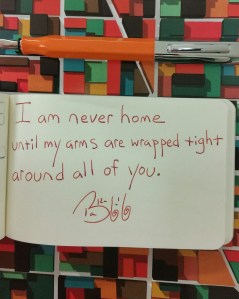 I am never home
until my arms are wrapped tight
around all of you.